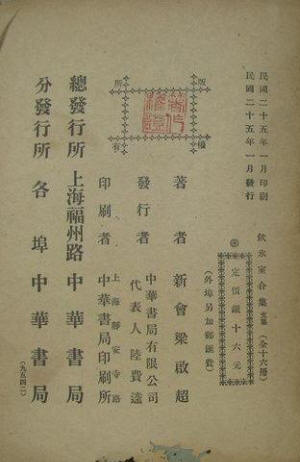 民國二十五年一月印刷
民國二十五年一月發行
飲冰室合集
(全十六冊)
定價銀十六元
(外埠另加郵匯費)
版權
所有
著者 新會梁啟超
發行者 中華書局有限公司
代表人 陸費逵
印刷者 上海靜安寺路
中華書局印刷所
總發行所 上海福州路 中華書局
分發行所 各埠 中華書局
(九五四二)